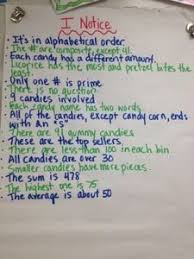 I Notice
It's in alphabetical order.
The # are composite, except 41.
Each candy has a different amount.
Licorice has the most and pretzel bites the
least.
Only one # is prime.
There is no question
9 candies involved
Each candy name has two words
All of the candies, except candy corn, ends
with an "S"
There are 41 gummy candies
These are the top sellers.
There are less than 100 in each bin
All candies are over 30
Smaller candies have more pieces.
The sum is 478
The highest one is 75
The average is about 50